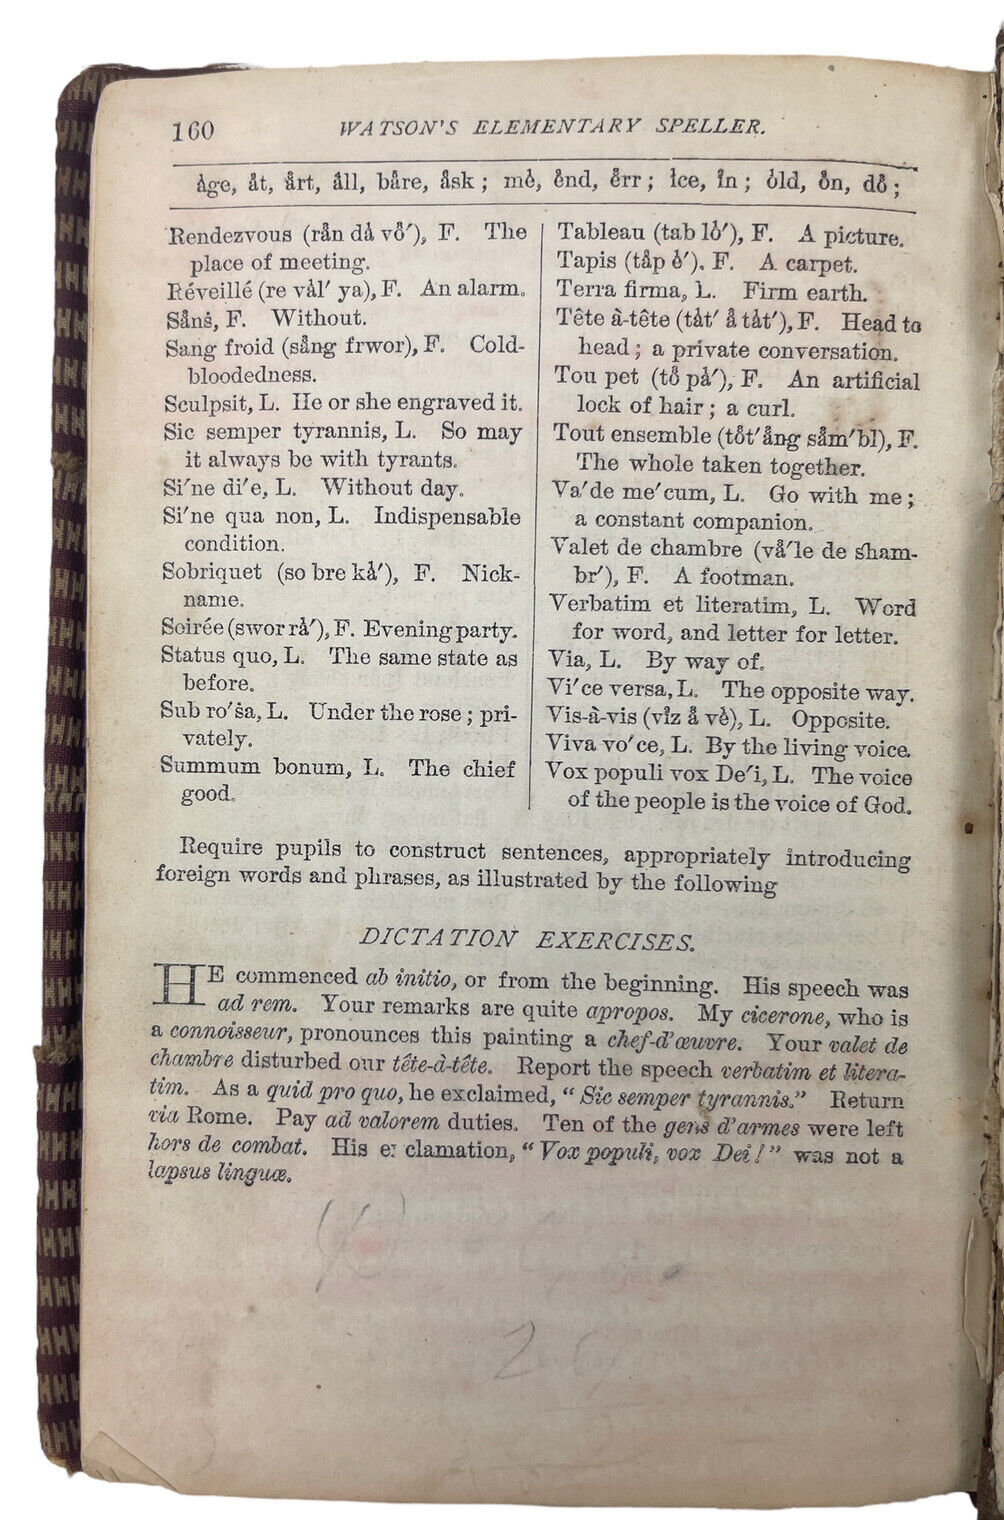 160 WATSON'S ELEMENTARY SPELLER.
åge, åt, årt, åll, båre, åsk; mė, ėnd, ėrr; ice, in; ȯld, ȯn, dȯ;
Rendezvous (rån då vȯ′), F. The
place of meeting.
Réveillé (re vål′ ya), F. An alarm.
Såns, F. Without.
Sang froid (sång frwor), F. Cold-
bloodedness.
Sculpsit, L. He or she engraved it.
Sic semper tyrannis, L. So may
it always be with tyrants.
Si′ne di′e, L. Without day.
Si′ne qua non, L. Indispensable
condition.
Sobriquet (so bre kå′), F. Nick-
name.
Soirée (swor rå′), F. Evening party.
Status quo, L. The same state as
before.
Sub ro′ṡa, L. Under the rose; pri-
vately.
Summum bonum, L. The chief
good.
Tableau (tab lȯ′), F. A picture.
Tapis (tåp ė′), F. A carpet.
Terra firma, L. Firm earth.
Tête à-tête (tåt′ å tåt′), F. Head to
head; a private conversation.
Tou pet (tȯ på′), F. An artificial
lock of hair; a curl.
Tout ensemble (tȯt′ång såm′bl), F.
The whole taken together.
Va′de me′cum, L. Go with me;
a constant companion.
Valet de chambre (vå′le de sham-
br′), F. A footman.
Verbatim et literatim, L. Word
for word, and letter for letter.
Via, L. By way of.
Vi′ce versa, L. The opposite way.
Vis-à-vis (viz å vė), L. Opposite.
Viva vo′ce, L. By the living voice.
Vox populi vox De′i, L. The voice
of the people is the voice of God.
Require pupils to construct sentences, appropriately introducing
foreign words and phrases, as illustrated by the following
DICTATION EXERCISES.
HE commenced ab initio, or from the beginning. His speech was
ad rem. Your remarks are quite apropos. My cicerone, who is
a connoisseur, pronounces this painting a chef-d'œuvre. Your valet de
chambre disturbed our tête-à-tête. Report the speech verbatim et litera-
tim. As a quid pro quo, he exclaimed, "Sic semper tyrannis." Return
via Rome. Pay ad valorem duties. Ten of the gens d'armes were left
hors de combat. His ex clamation, "Vox populi, vox Dei!" was not a
lapsus linguæ.